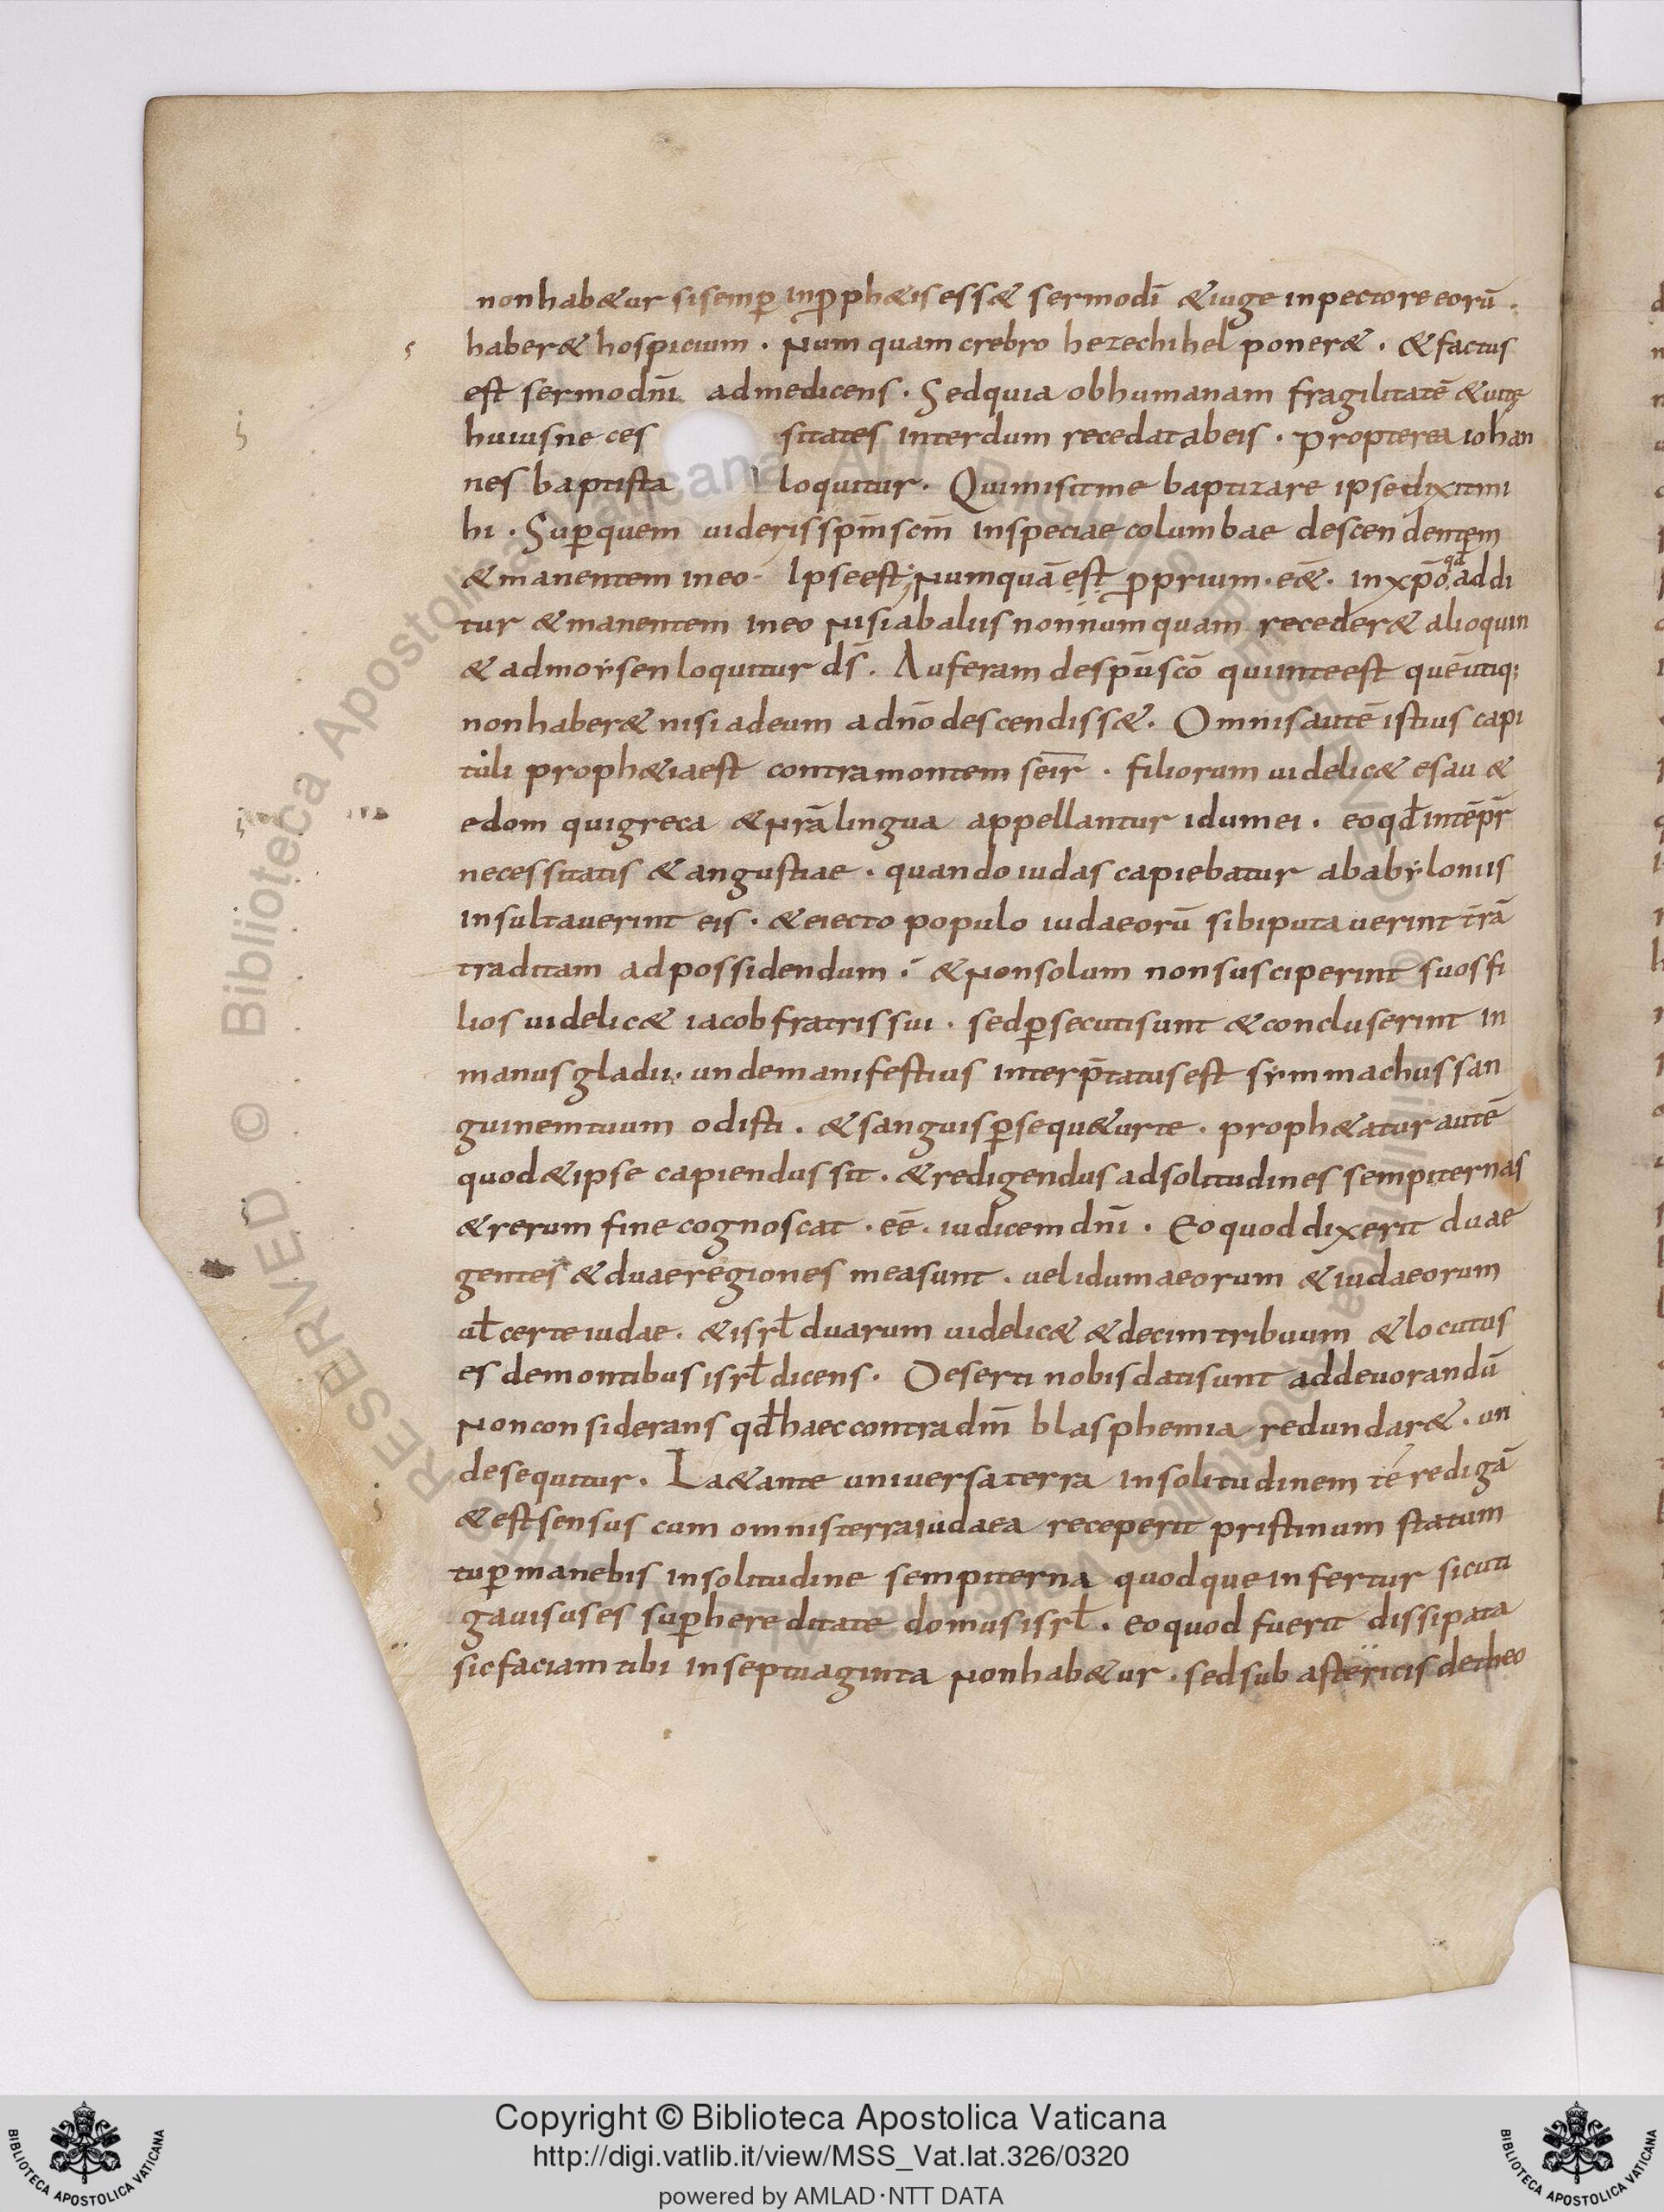 non habetur si semp̄ in ꝓphetis esset sermo dī et iuge in pectore eorū.
haberet hospicium. Numquam crebro hezechihel poneret. et factus
est sermo dn̄i ad me dicens. Sed quia ob humanam fragilitatē et uitę
huius neces sitates interdum recedat ab eis. propterea iohan
nes baptista loquitur. Qui misit me baptizare ipse dixit mi
hi. Sup̄ quem uideris sp̄m sc̄m in speciae columbae descendentem
et manentem in eo. Ipse est; Numquā est ꝓprium. eēt. in xp̄o qd̄ addi
tur et manentem in eo nisi ab aliis nonnumquam recederet alioquin
et ad moysen loquitur ds̄. Auferam de sp̄u sc̄o qui in te est quē utiq;
non haberet nisi ad eum a dn̄o descendisset. Omnis autē istius capi
tuli prophetia est contra montem seir. filiorum uidelicet esau et
edom qui greca et nr̄a lingua appellantur idumei. eo qd̄ in tēpr̄
necessitatis et angustiae. quando iudas capiebatur a babyloniis
insultauerint eis. et eiecto populo iudaeorū sibi putauerint tr̄ā
traditam ad possidendum. et non solum non susciperint suos fi
lios uidelicet iacob fratris sui. sed p̄secuti sunt et concluserint in
manus gladii. unde manifestius interp̄tatus est symmachus san
guinem tuum odisti. et sanguis p̄sequetur te. prophetatur autē
quod et ipse capiendus sit. et redigendus ad solitudines sempiternas
et rerum fine cognoscat. eē. iudicem dn̄i. Eo quod dixerit duae
gentes et duae regiones mea sunt. uel idumaeorum et iudaeorum
ul̄ certe iudae. et isrl̄ duarum uidelicet et decim tribuum et locutus
es de montibus isrl̄ dicens. Deserti nobis dati sunt ad deuorandū
Non considerans qd̄ haec contra dn̄m blasphemia redundaret. un
de sequitur. Laetante uniuersa terra in solitudinem te redigā
et est sensus cum omnis terra iudaea receperit pristinum statum
tu p̄manebis in solitudine sempiterna quodque infertur sicuti
gauisus es sup̄ hereditate domus isrl̄. eo quod fuerit dissipata
sic faciam tibi in septuaginta non habetur. sed sub astericis de theo
Copyright © Biblioteca Apostolica Vaticana
http://digi.vatlib.it/view/MSS_Vat.lat.326/0320
powered by AMLAD·NTT DATA
BIBLIOTECA APOSTOLICA VATICANA
BIBLIOTECA APOSTOLICA VATICANA